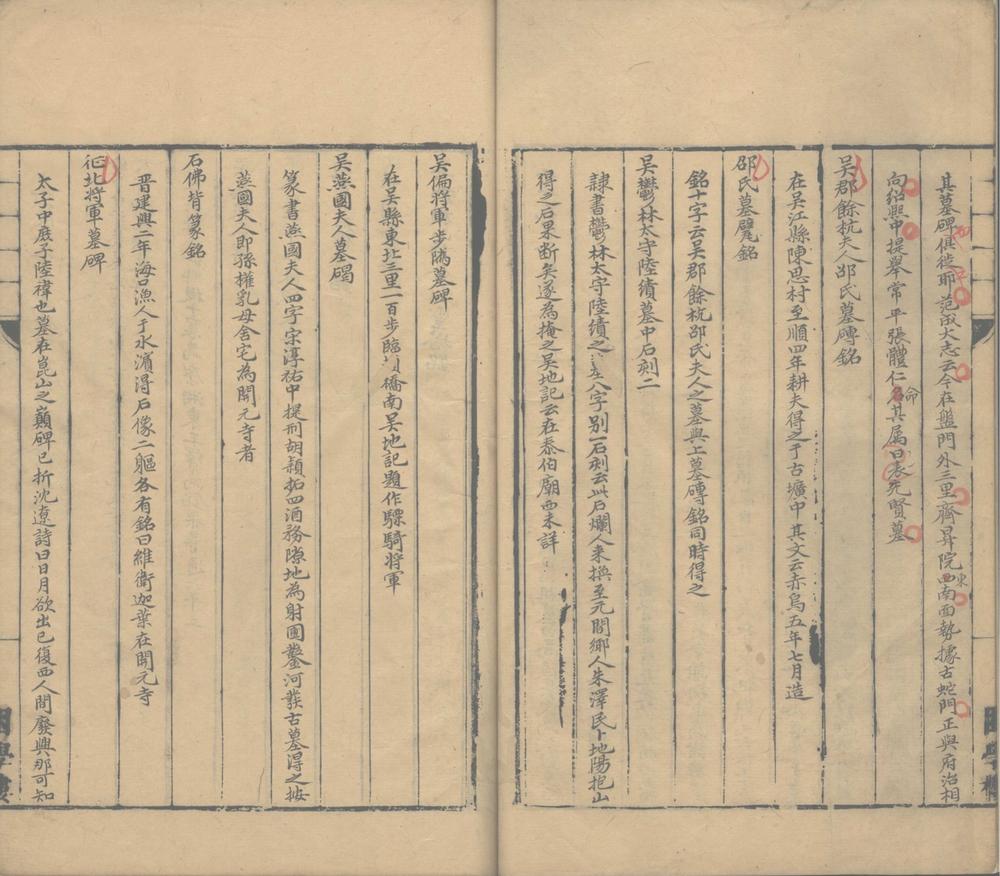 其墓碑俱徙耶范成大志云今在盤門外三里齊昇院西南面勢據古蛇門正與府治相
東
向紹熙中提舉常平張體仁名其属曰表先賢墓
命
吳郡餘杭夫人邵氏墓磚銘
在吳江縣陳思村至順四年耕夫得之于古壙中其文云赤烏五年七月造
邵氏墓甓銘
銘十字云吳郡餘杭邵氏夫人之墓與上墓磚銘同時得之
吳鬱林太守陸績墓中石刻二
隸書鬱林太守陸績之八字別一石刻云此石爛人來換至元間鄉人朱澤民卜地陽抱山
得之石果断矣遂為掩之吳地記云在泰伯廟西未詳
吳偏將軍步隲墓碑
在吳縣東北三里一百步臨頓橋南吳地記題作驃騎将軍
吳燕國夫人墓碣
篆書燕國夫人四字宋淳祐中提刑胡頴拓四酒務隙地為射圃鑿河發古墓得之按
燕國夫人即孫權乳母舍宅為開元寺者
石佛背篆銘
晋建興二年海口漁人于水濱得石像二軀各有銘曰維衛迦葉在開元寺
征北將軍墓碑
太子中庶子陸禕也墓在崑山之巔碑已折沈遼詩曰日月欲出已復西人間廢興那可知